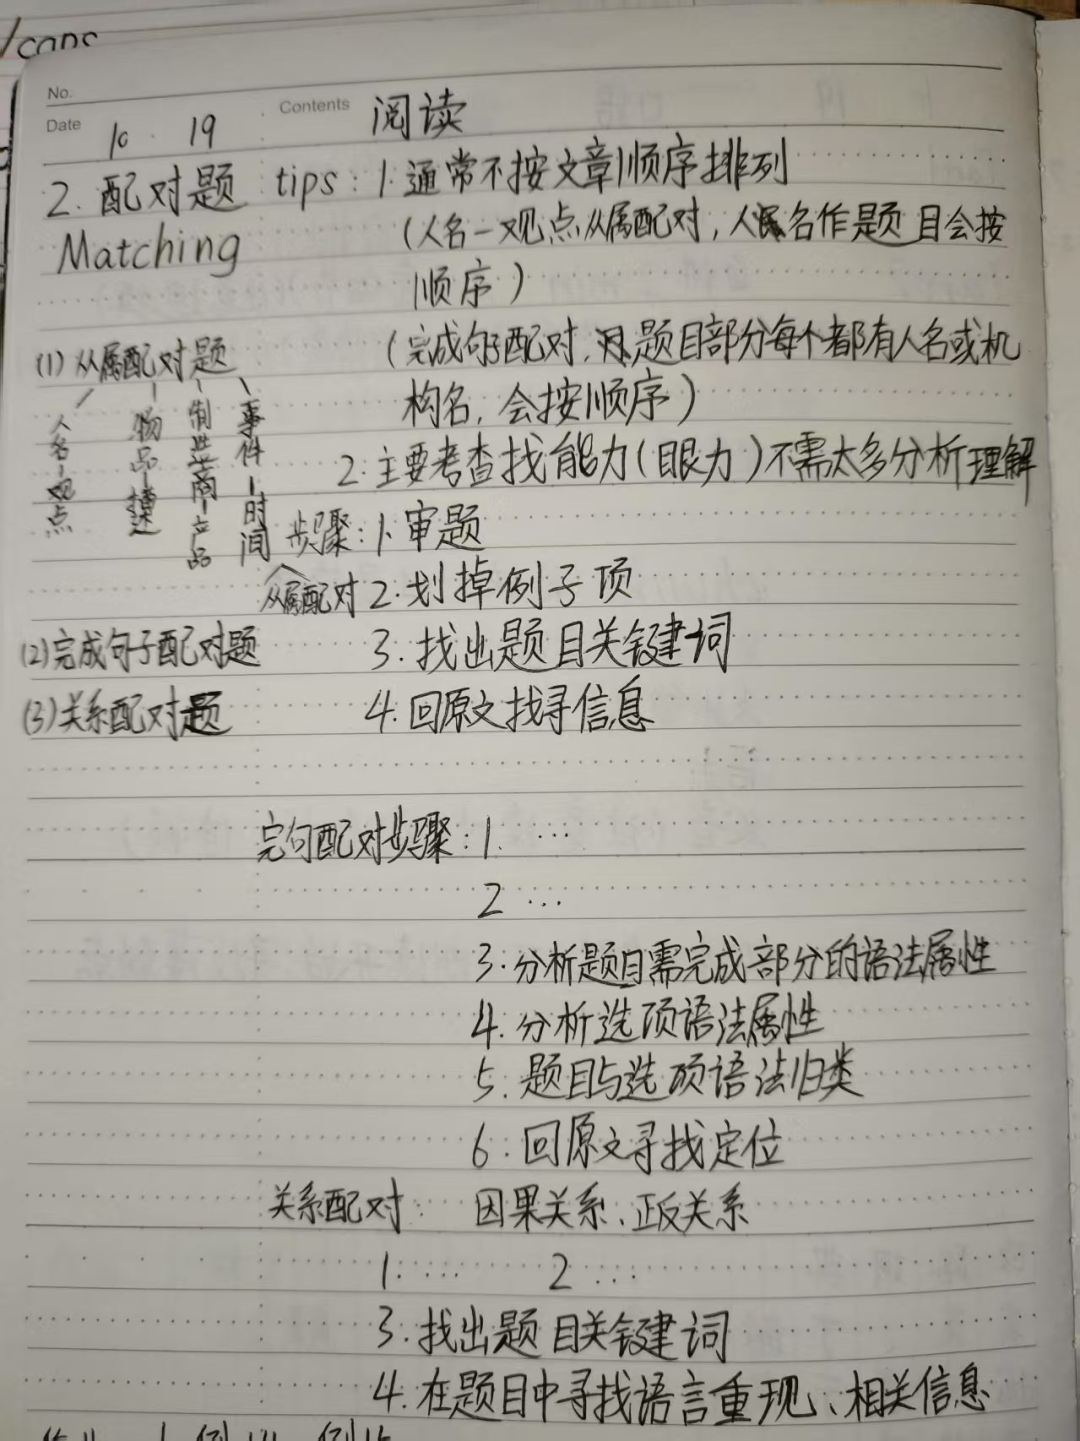 No.
Date 10 · 19 Contents 阅读
2. 配对题 tips: 1. 通常不按文章顺序排列
Matching (人名—观点从属配对, 人名作是题目会按
顺序)
(1) 从属配对题 (完成句子配对, 题目部分每个都有人名或机
构名, 会按顺序)
人名-观点
物品-描述
制造商-产品
事件-时间
2. 主要考查找能力(眼力)不需太多分析理解
步骤: 1. 审题
从属配对 2. 划掉例子项
(2) 完成句子配对题 3. 找出题目关键词
(3) 关系配对题 4. 回原文找寻信息
完句配对步骤: 1. ...
2 ...
3. 分析题目需完成部分的语法属性
4. 分析选项语法属性
5. 题目与选项语法归类
6. 回原文寻找定位
关系配对 因果关系、正反关系
1. ... 2 ...
3. 找出题目关键词
4. 在题目中寻找语言重现、相关信息